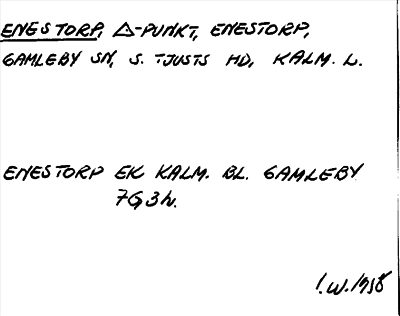 ENESTORP, △-PUNKT, ENESTORP,
GAMLEBY SN, S. TJUSTS HD, KALM. L.
ENESTORP EK KALM. BL. GAMLEBY
7G3h.
I.W. 1958